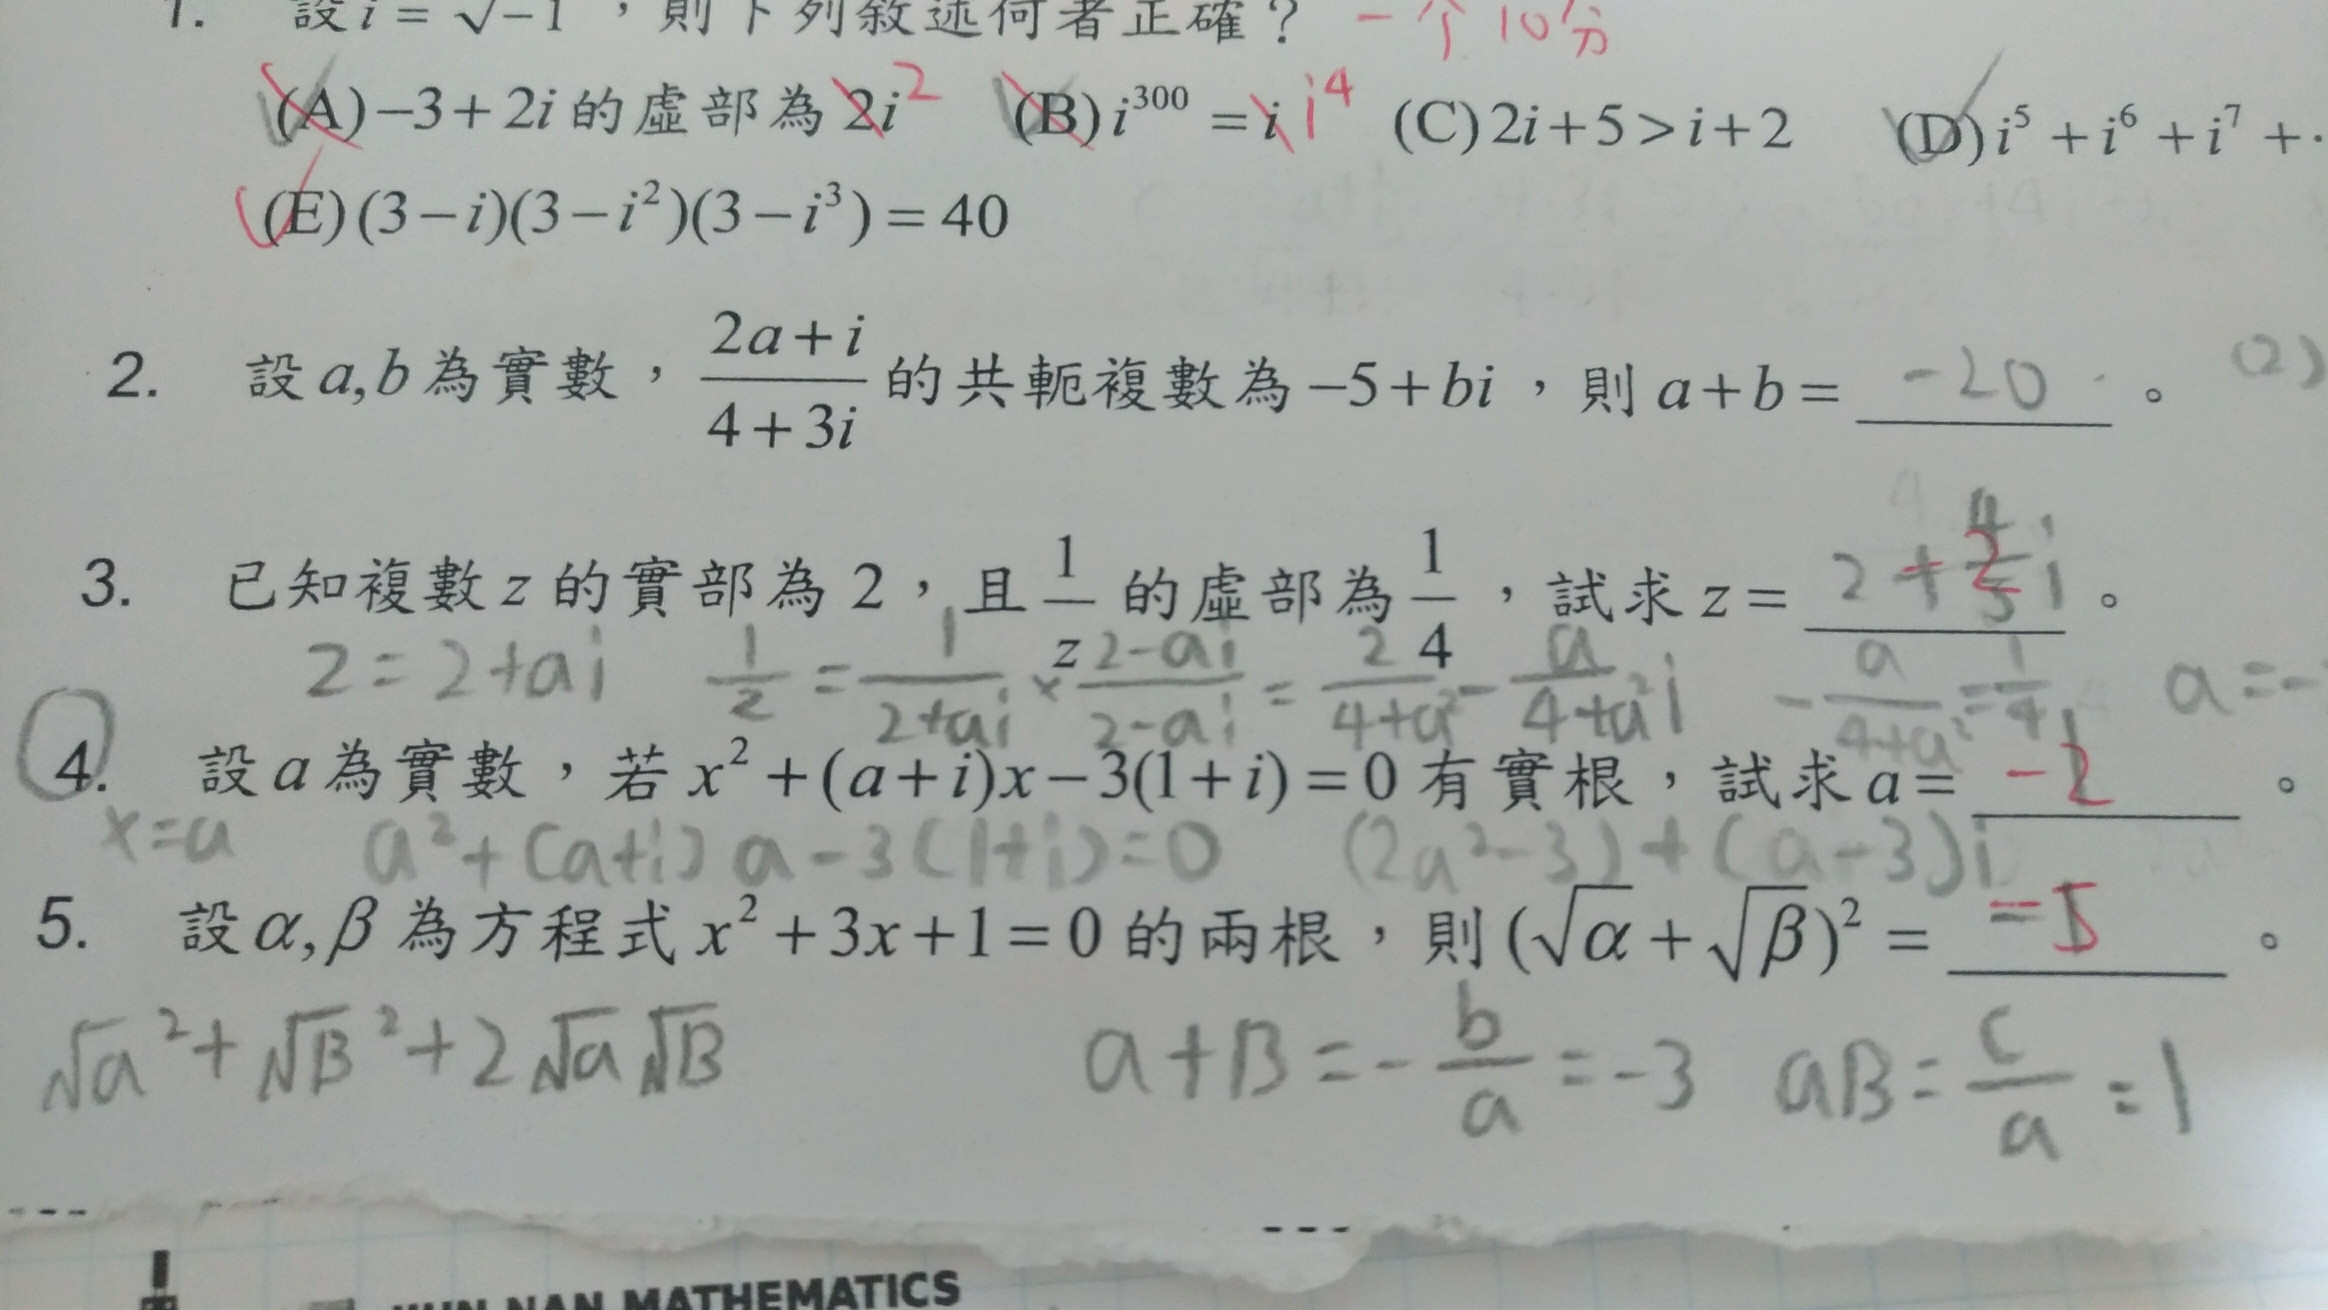 1. 設 i = √-1 ，則下列敘述何者正確？ 一个10分
(A) -3+2i 的虛部為 2i 2 (B) i³⁰⁰ = i i⁴ (C) 2i+5 > i+2 (D) i⁵ + i⁶ + i⁷ + ·
(E) (3-i)(3-i²)(3-i³) = 40
2. 設 a,b 為實數， (2a+i)/(4+3i) 的共軛複數為 -5+bi ，則 a+b = -20 。 (2)
3. 已知複數 z 的實部為 2，且 1/z 的虛部為 1/4 ，試求 z = 2 + i 。
z = 2+ai 1/z = 1/(2+ai) × (2-ai)/(2-ai) = 2/(4+a²) - a/(4+a²) i - a/(4+a²) = 1/4 a = -
4. 設 a 為實數，若 x² + (a+i)x - 3(1+i) = 0 有實根，試求 a = -2 。
x=a a² + (a+i) a - 3(1+i) = 0 (2a²-3) + (a-3)i
5. 設 α, β 為方程式 x² + 3x + 1 = 0 的兩根，則 (√α + √β)² = -5 。
√a² + √B² + 2√a√B a+B = -b/a = -3 aB = c/a = 1
NAN MATHEMATICS